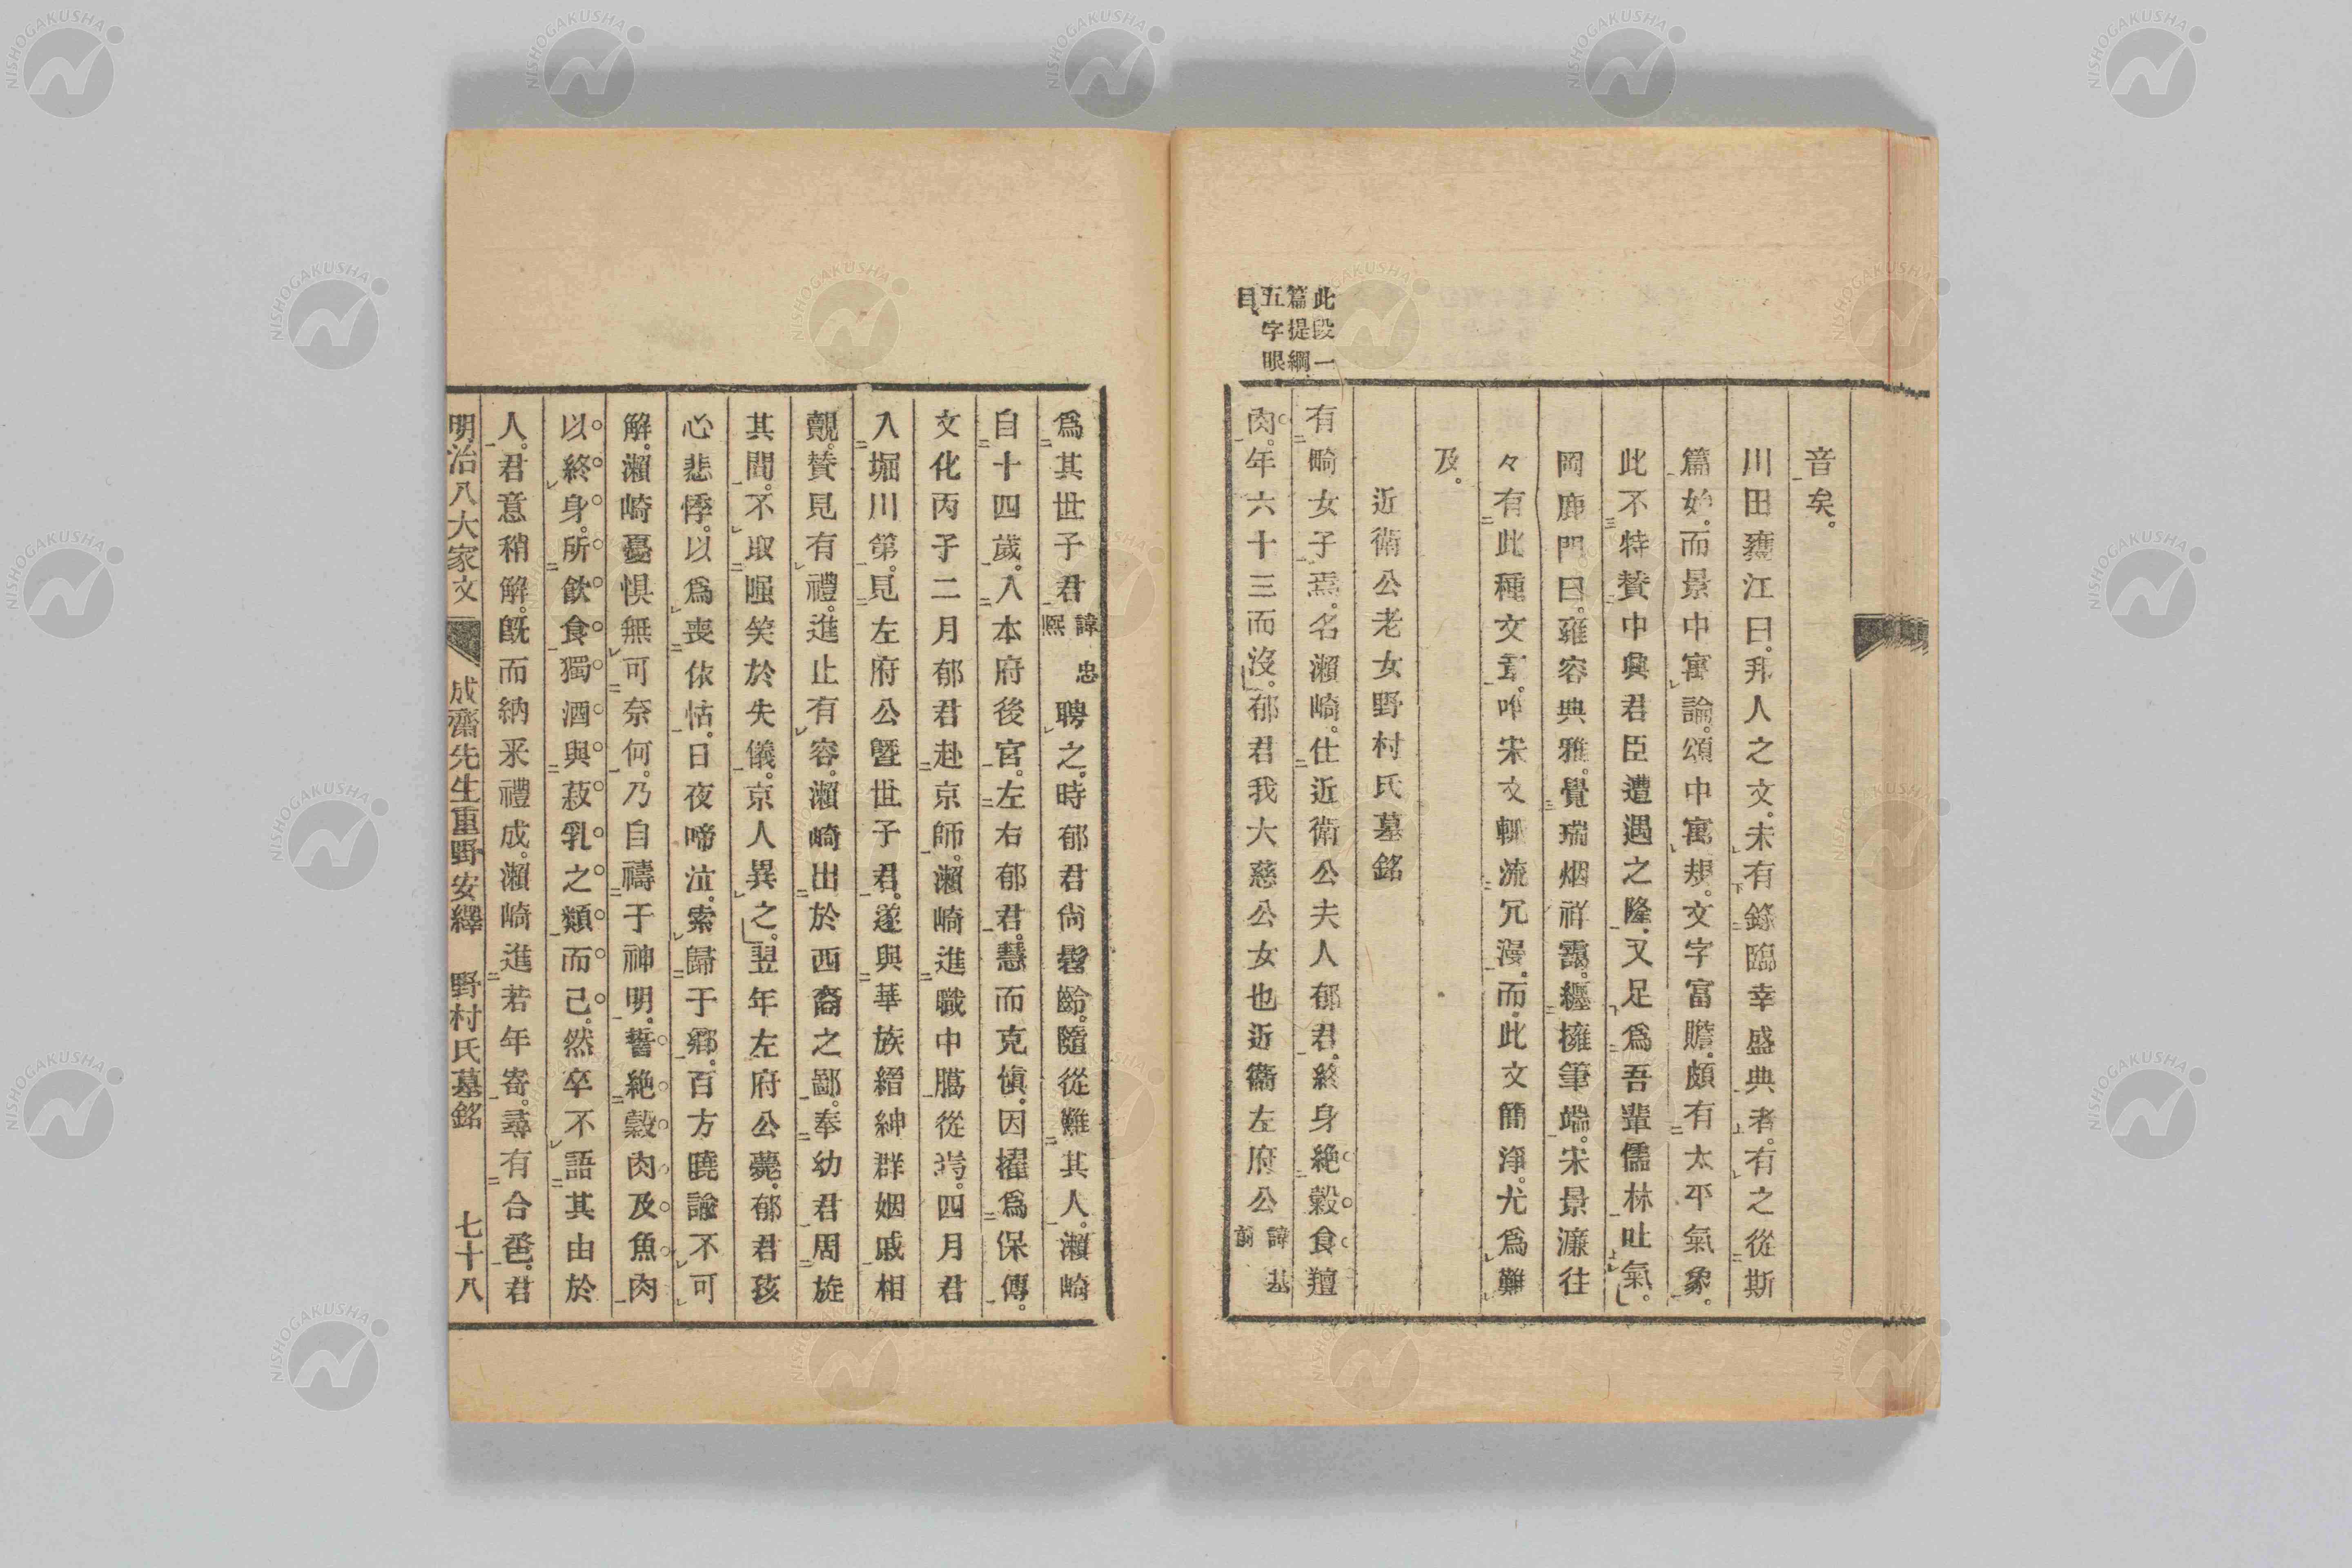 此段一
篇提綱
五字眼
目
音矣。
川田甕江曰。邦人之文。未有錄臨幸盛典者。有之從斯
篇始。而景中寓論。頌中寓規。文字富贍。頗有太平氣象。
此不特賛中興君臣遭遇之隆。又足爲吾輩儒林吐氣。
岡鹿門曰。雍容典雅。覺瑞烟祥靄。纒擁筆端。宋景濂往
々有此種文章。咋宋文輒流冗漫。而此文簡淨。尤爲難
及。
近衛公老女野村氏墓銘
有畸女子焉。名瀨崎。仕近衛公夫人郁君。終身絶穀食羶
肉。年六十三而沒。郁君我大慈公女也近衞左府公諱基前
爲其世子君諱忠熙聘之。時郁君尙髫齡。隨從難其人。瀨崎
自十四歲。入本府後宮。左右郁君。慧而克愼。因擢爲保傅。
文化丙子二月郁君赴京師。瀨崎進職中﨟從焉。四月君
入堀川第。見左府公曁世子君。遂與華族縉紳群姻戚相
覿。賛見有禮。進止有容。瀨崎出於西裔之鄙。奉幼君周旋
其間。不取嗤笑於失儀。京人異之。翌年左府公薨。郁君孩
心悲悸。以爲喪依怙。日夜啼泣。索歸于鄕。百方曉諭不可
解。瀨崎憂惧無可奈何。乃自禱于神明。誓絶穀肉及魚肉
以終身。所飮食獨酒與菽乳之類而己。然卒不語其由於
人。君意稍解。旣而納采禮成。瀨崎進若年寄。尋有合巹。君
明治八大家文 成齋先生重野安繹 野村氏墓銘 七十八